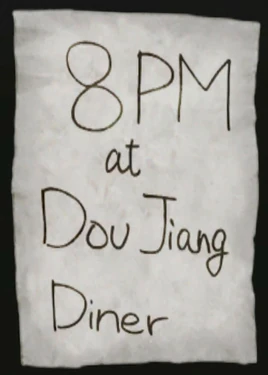 8PM
at
Dou Jiang
Diner